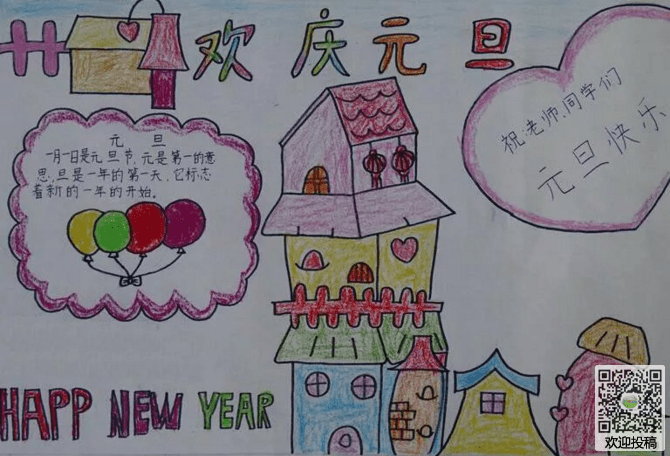 欢庆元旦
元 旦
一月一日是元旦节,元是第一的意
思,旦是一年的第一天,它标志
着新的一年的开始。
祝:老师.同学们
元旦快乐
HAPP NEW YEAR
欢迎投稿